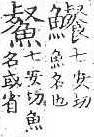 七安切
魚名也
䱗
七安切魚
名或省